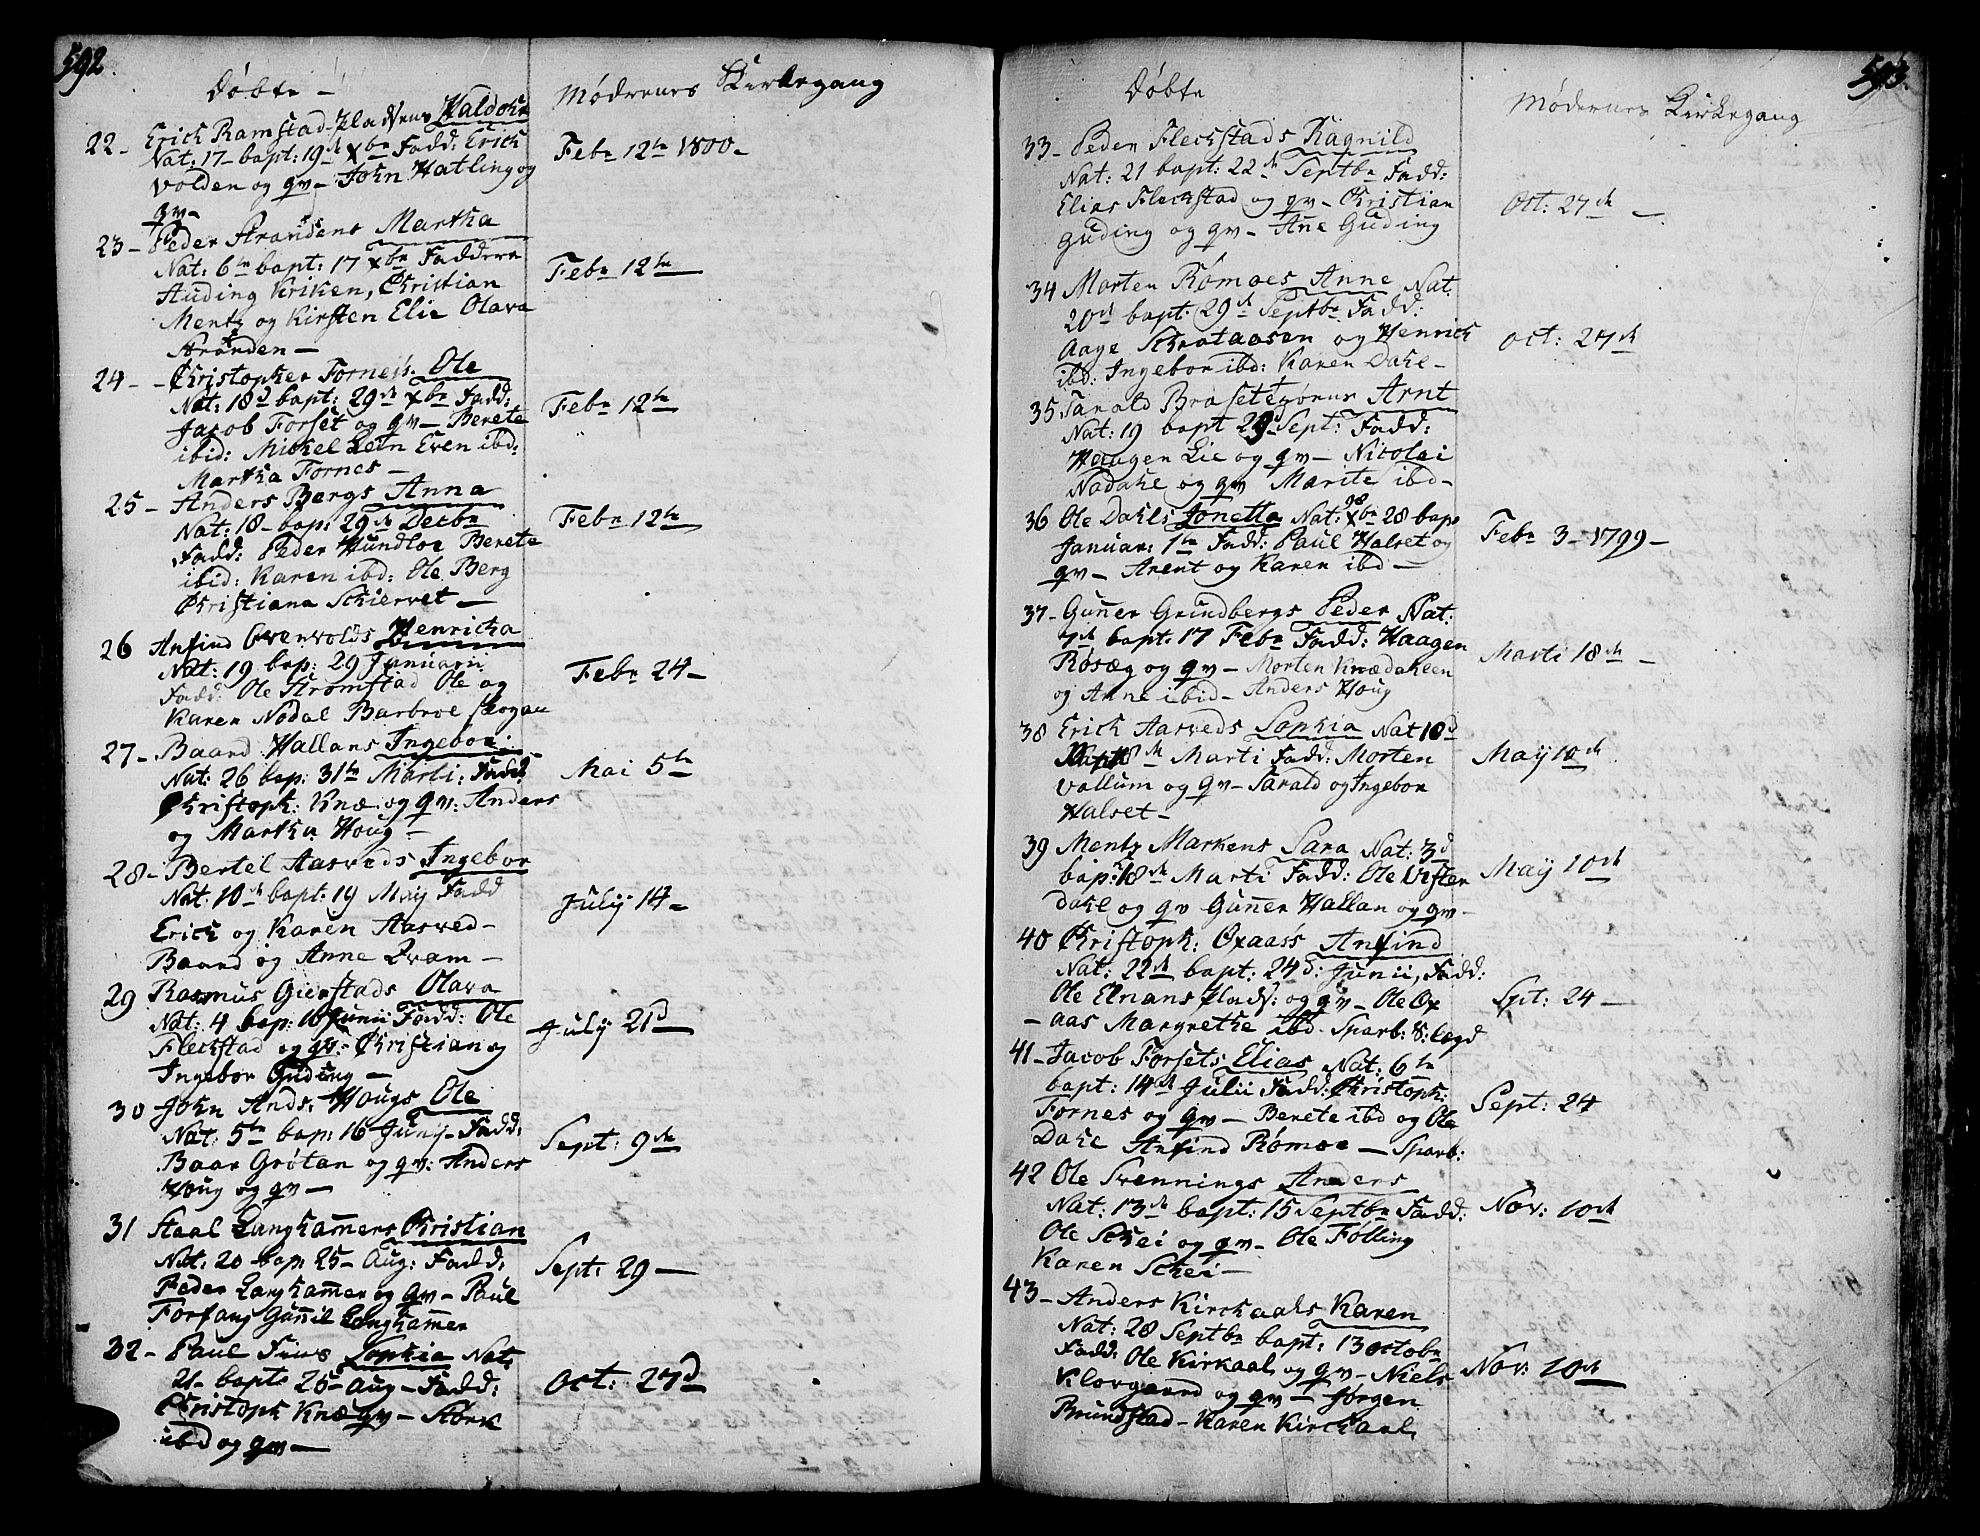 592.
Döbte —
Mödrenes Kirkegang
22 - Erich Ramstad-Pladsens Haldoke
Nat: 17 - bapt: 19d xbr Fadd: Erich
Volden og qv - John Hatling og
qv -
Febr 12te 1800 -
23 - Peder Strandens Martha
Nat: 6te bapt: 17 xbr Faddere
Auding Kriken, Christian
Mentz og Kirsten Elie Olava
Stranden -
Febr 12te
24 - - Christopher Fornes: Ole
Nat: 18d bapt: 29de xbr Fadd:
Jacob Forset og qv - Berete
ibid: Mickel Lein Even ibd:
Martha Fornes -
Febr 12te
25 - Anders Bergs Anna
Nat: 18 - bap: 29de Decbr
Fadd: Peder Hundloe Berete
ibid: Karen ibd: Ole Berg
Christiana Schiervet -
Febr 12te
26 Anfind Overvolds Henricha
Nat: 19 bap: 29 Januarii
Fadd: Ole Stromstad Ole og
Karen Nodal Barbroe Skogan
Febr 24 -
27 - Baard Hallans Ingebor:
Nat: 26 bap: 31te Marti: Fadd:
Christoph: Knæ og qv: Anders
og Martha Houg -
Mai 5te
28 - Bertel Aasveds Ingebor
Nat: 10de bapt: 19 May Fadd
Erich og Karen Aasved -
Baard og Anne Qvam -
July 14 -
29 Rasmus Gierstads Olava
Nat: 4 bap: 16 Junii Fadd: Ole
Fleckstad og qv: - Christian og
Ingebor Guding -
July 21d
30 John Ands: Hougs Ole
Nat: 5te bap: 16 Junij - Fadd:
Baar Grötan og qv: Anders
Houg og qv -
Sept: 9de
31 Staal Langhamers Christian
Nat: 20 bap: 25 - Aug: Fadd:
Peder Langhamer og qv - Paul
Forfang Gunnil Langhammer
Sept: 29 -
32 - Paul Sius Sophia Nat:
21 - bapt: 25 - Aug - Fadd:
Christoph Knæ qv - Störk
ibd og qv -
Oct: 27d
593.
Döbte
Mödrenes Kirkegang
33 - Peder Fleckstads Ragnild
Nat: 21 bapt: 22d Septbr Fadd:
Elias Fleckstad og qv - Christian
Guding og qv - Ane Guding
Oct: 27de -
34 Morten Römoes Anne Nat:
20d bapt: 29d Septbr Fadd:
Aage Schrataasen og Henrich
ibd: Ingebor ibd: Karen Dahl -
Oct: 27de
35 Tarald Brasetegörns Arnt
Nat: 19 bapt 29 Sept: Fadd:
Haagen Lie og qv - Nicolai
Nodahl og qv Marite ibd -
36 Ole Dahls Jonetta Nat: xbr 28 bap:
98
Januar: 1te Fadd: Paul Halset og
qv - Arent og Karen ibd -
Febr 3 - 1799 -
37 - Guner Grindbergs Peder Nat:
7de bapt: 17 Febr Fadd: Haagen
Rösæg og qv - Morten Knædahlen
og Anne ibid - Anders Houg
Marti 18de -
38 Erich Aasveds Sophia Nat 10d
Bapt 18de Marti Fadd: Morten
Vollum og qv - Tarald og Ingebor
Halset -
Maÿ 10de
39 Mentz Markens Sara Nat: 3d
bap: 18de Marti Fadd: Ole Uften
Dahl og qv Guner Hallan og qv -
Maÿ 10de
40 Christoph: Oxaas's Anfind
Nat: 22de bapt: 24d: Junii, Fadd:
Ole Elnans Plads: og qv - Ole Ox
- aas Margrethe ibd - Sparb: S: legd
Spt: 24 -
41 - Jacob Forsets Elias Nat: 6te
bapt: 14de Julii Fadd: Christoph:
Fornes og qv - Berete ibd og Ole
Dahl Anfind Römoe - Sparb:
Sept: 24
42 Ole Svennings Anders
Nat: 13de bapt: 15 Septbr Fadd:
Ole Schei og qv - Ole Fölling
Karen Schei -
Nov: 10de
43 - Anders Kirchaals Karen
Nat: 28 Septbr bapt: 13 Octobr
Fadd: Ole Kirkaal og qv - Niels
Klovgaard og qv - Jörgen
Brundstad - Karen Kirchaal.
Nov: 10de